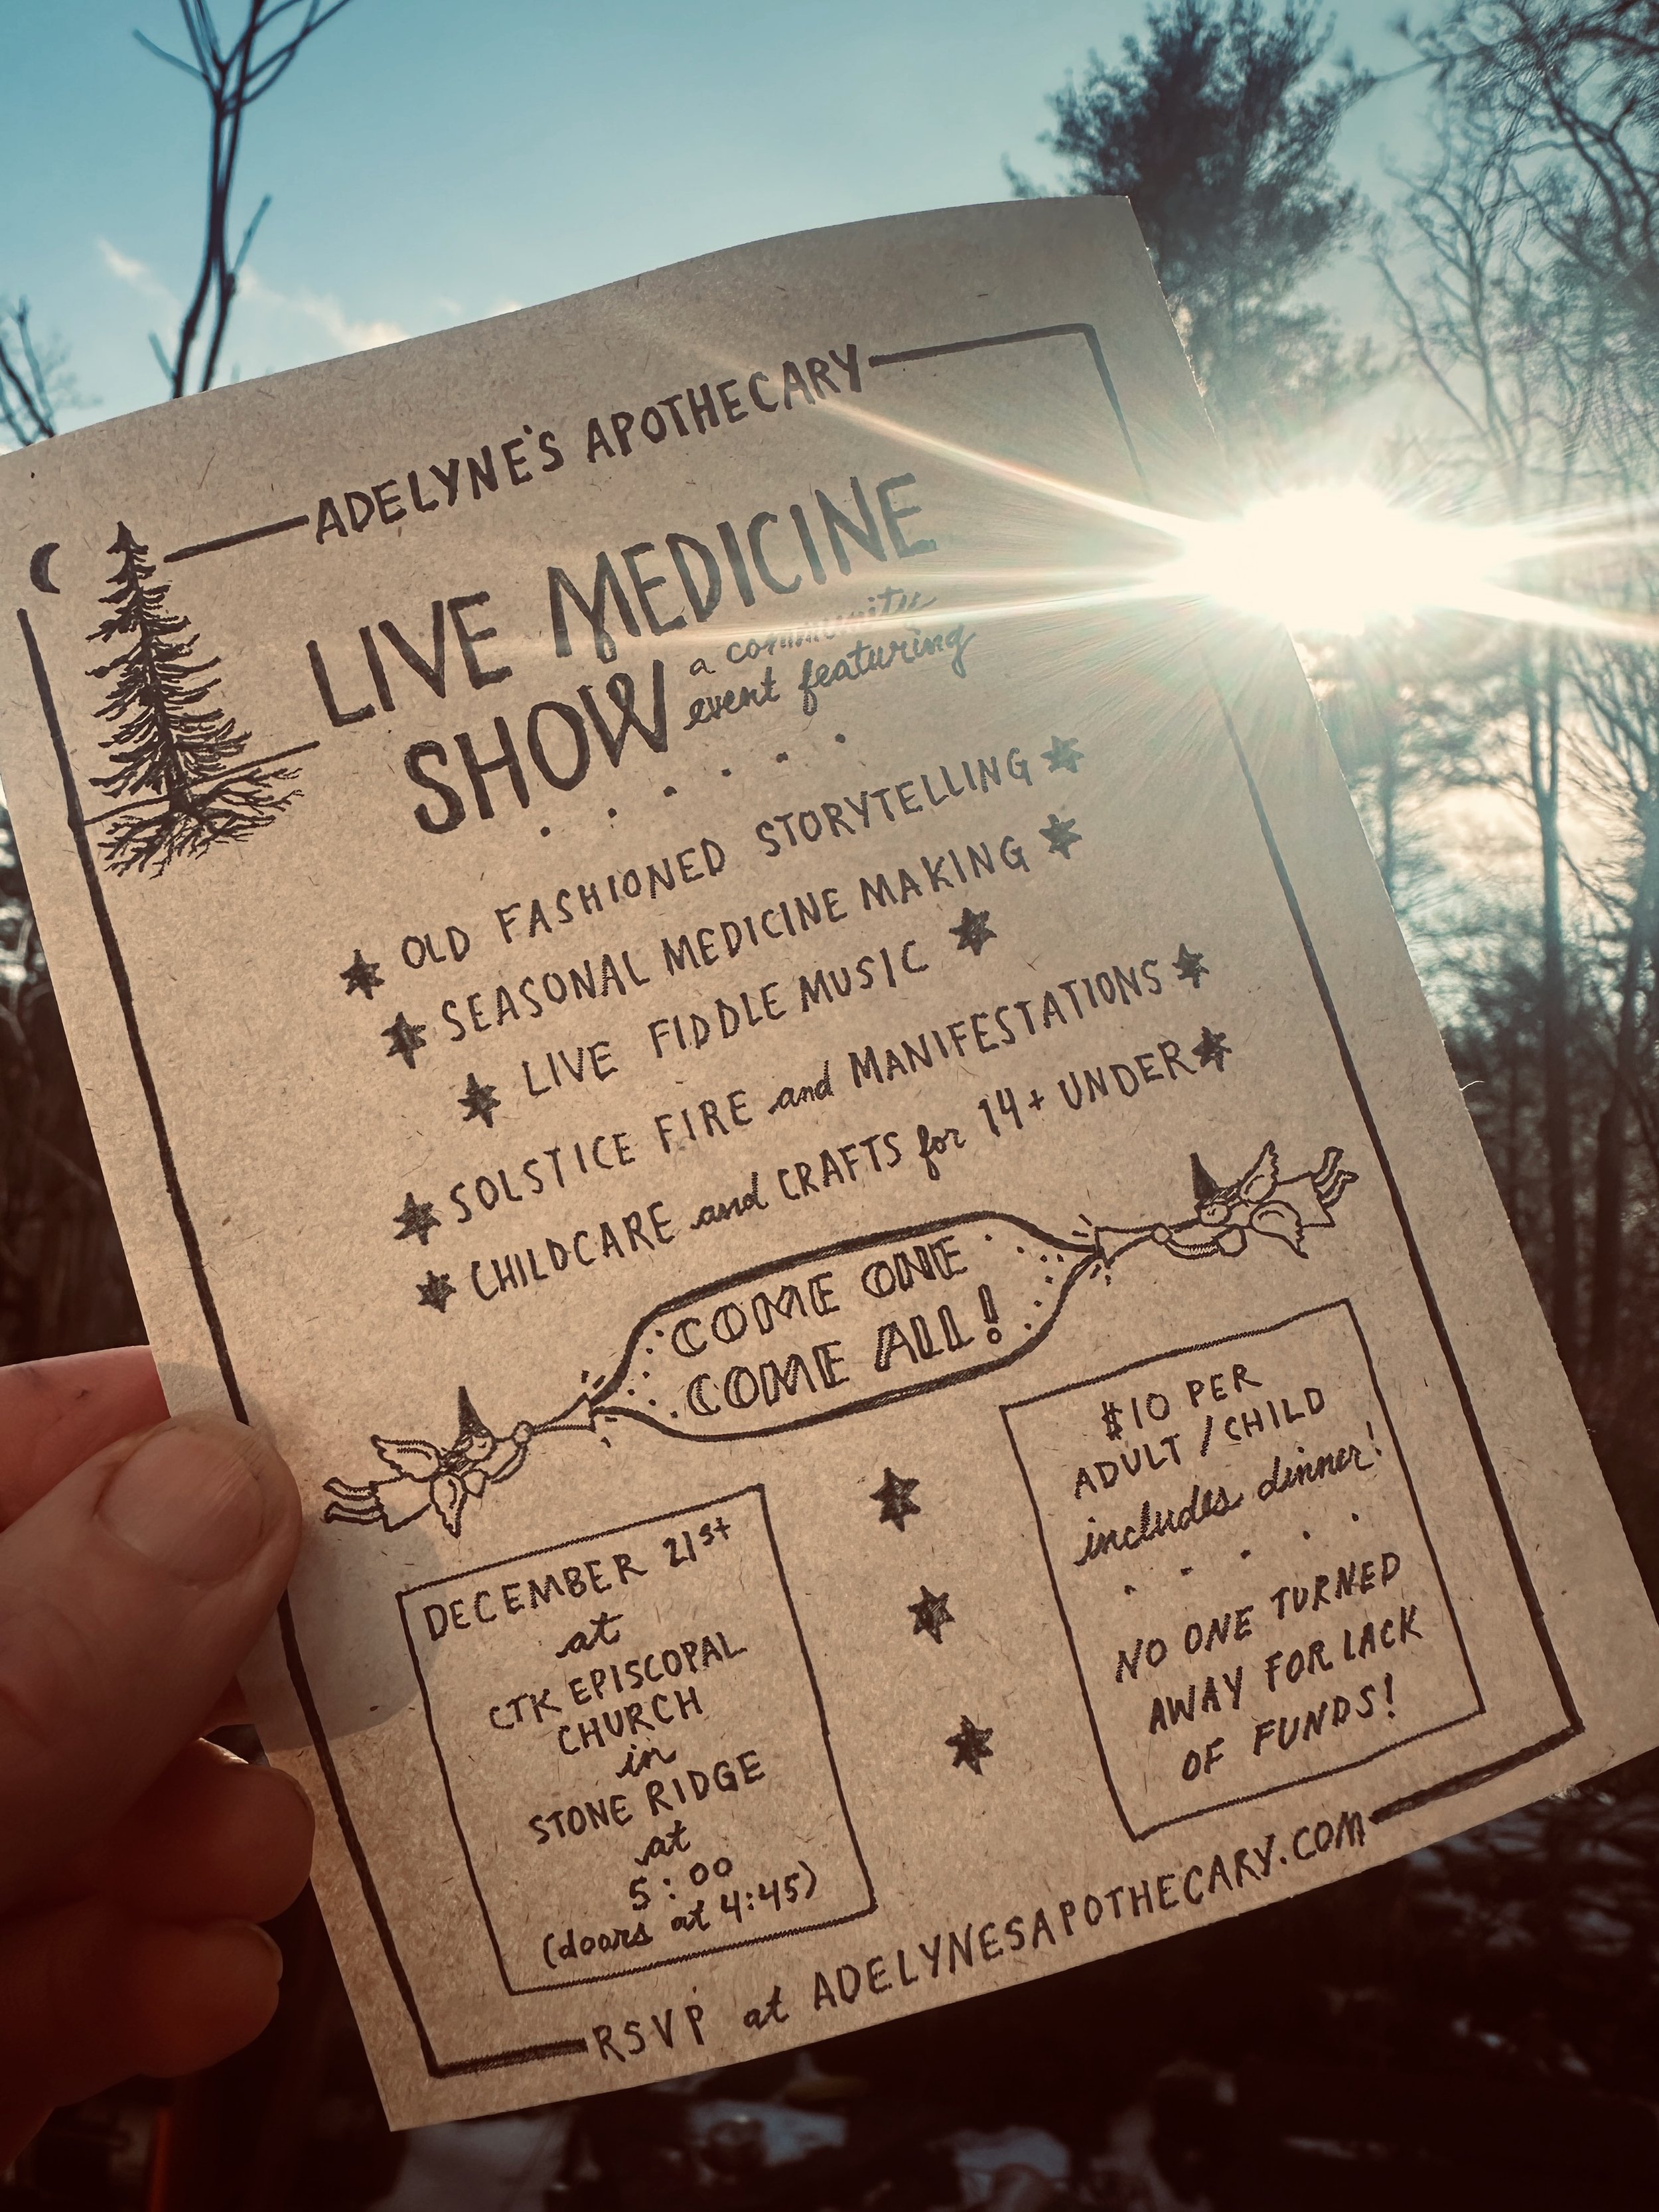 ADELYNE'S APOTHECARY
LIVE MEDICINE
SHOW
a community
event featuring
OLD FASHIONED STORYTELLING
SEASONAL MEDICINE MAKING
LIVE FIDDLE MUSIC
SOLSTICE FIRE and MANIFESTATIONS
CHILDCARE and CRAFTS for 14+ UNDER
COME ONE
COME ALL!
DECEMBER 21st
at
CTK EPISCOPAL
CHURCH
in
STONE RIDGE
at
5:00
(doors at 4:45)
$10 PER
ADULT/CHILD
includes dinner!
NO ONE TURNED
AWAY FOR LACK
OF FUNDS!
RSVP at ADELYNESAPOTHECARY.COM